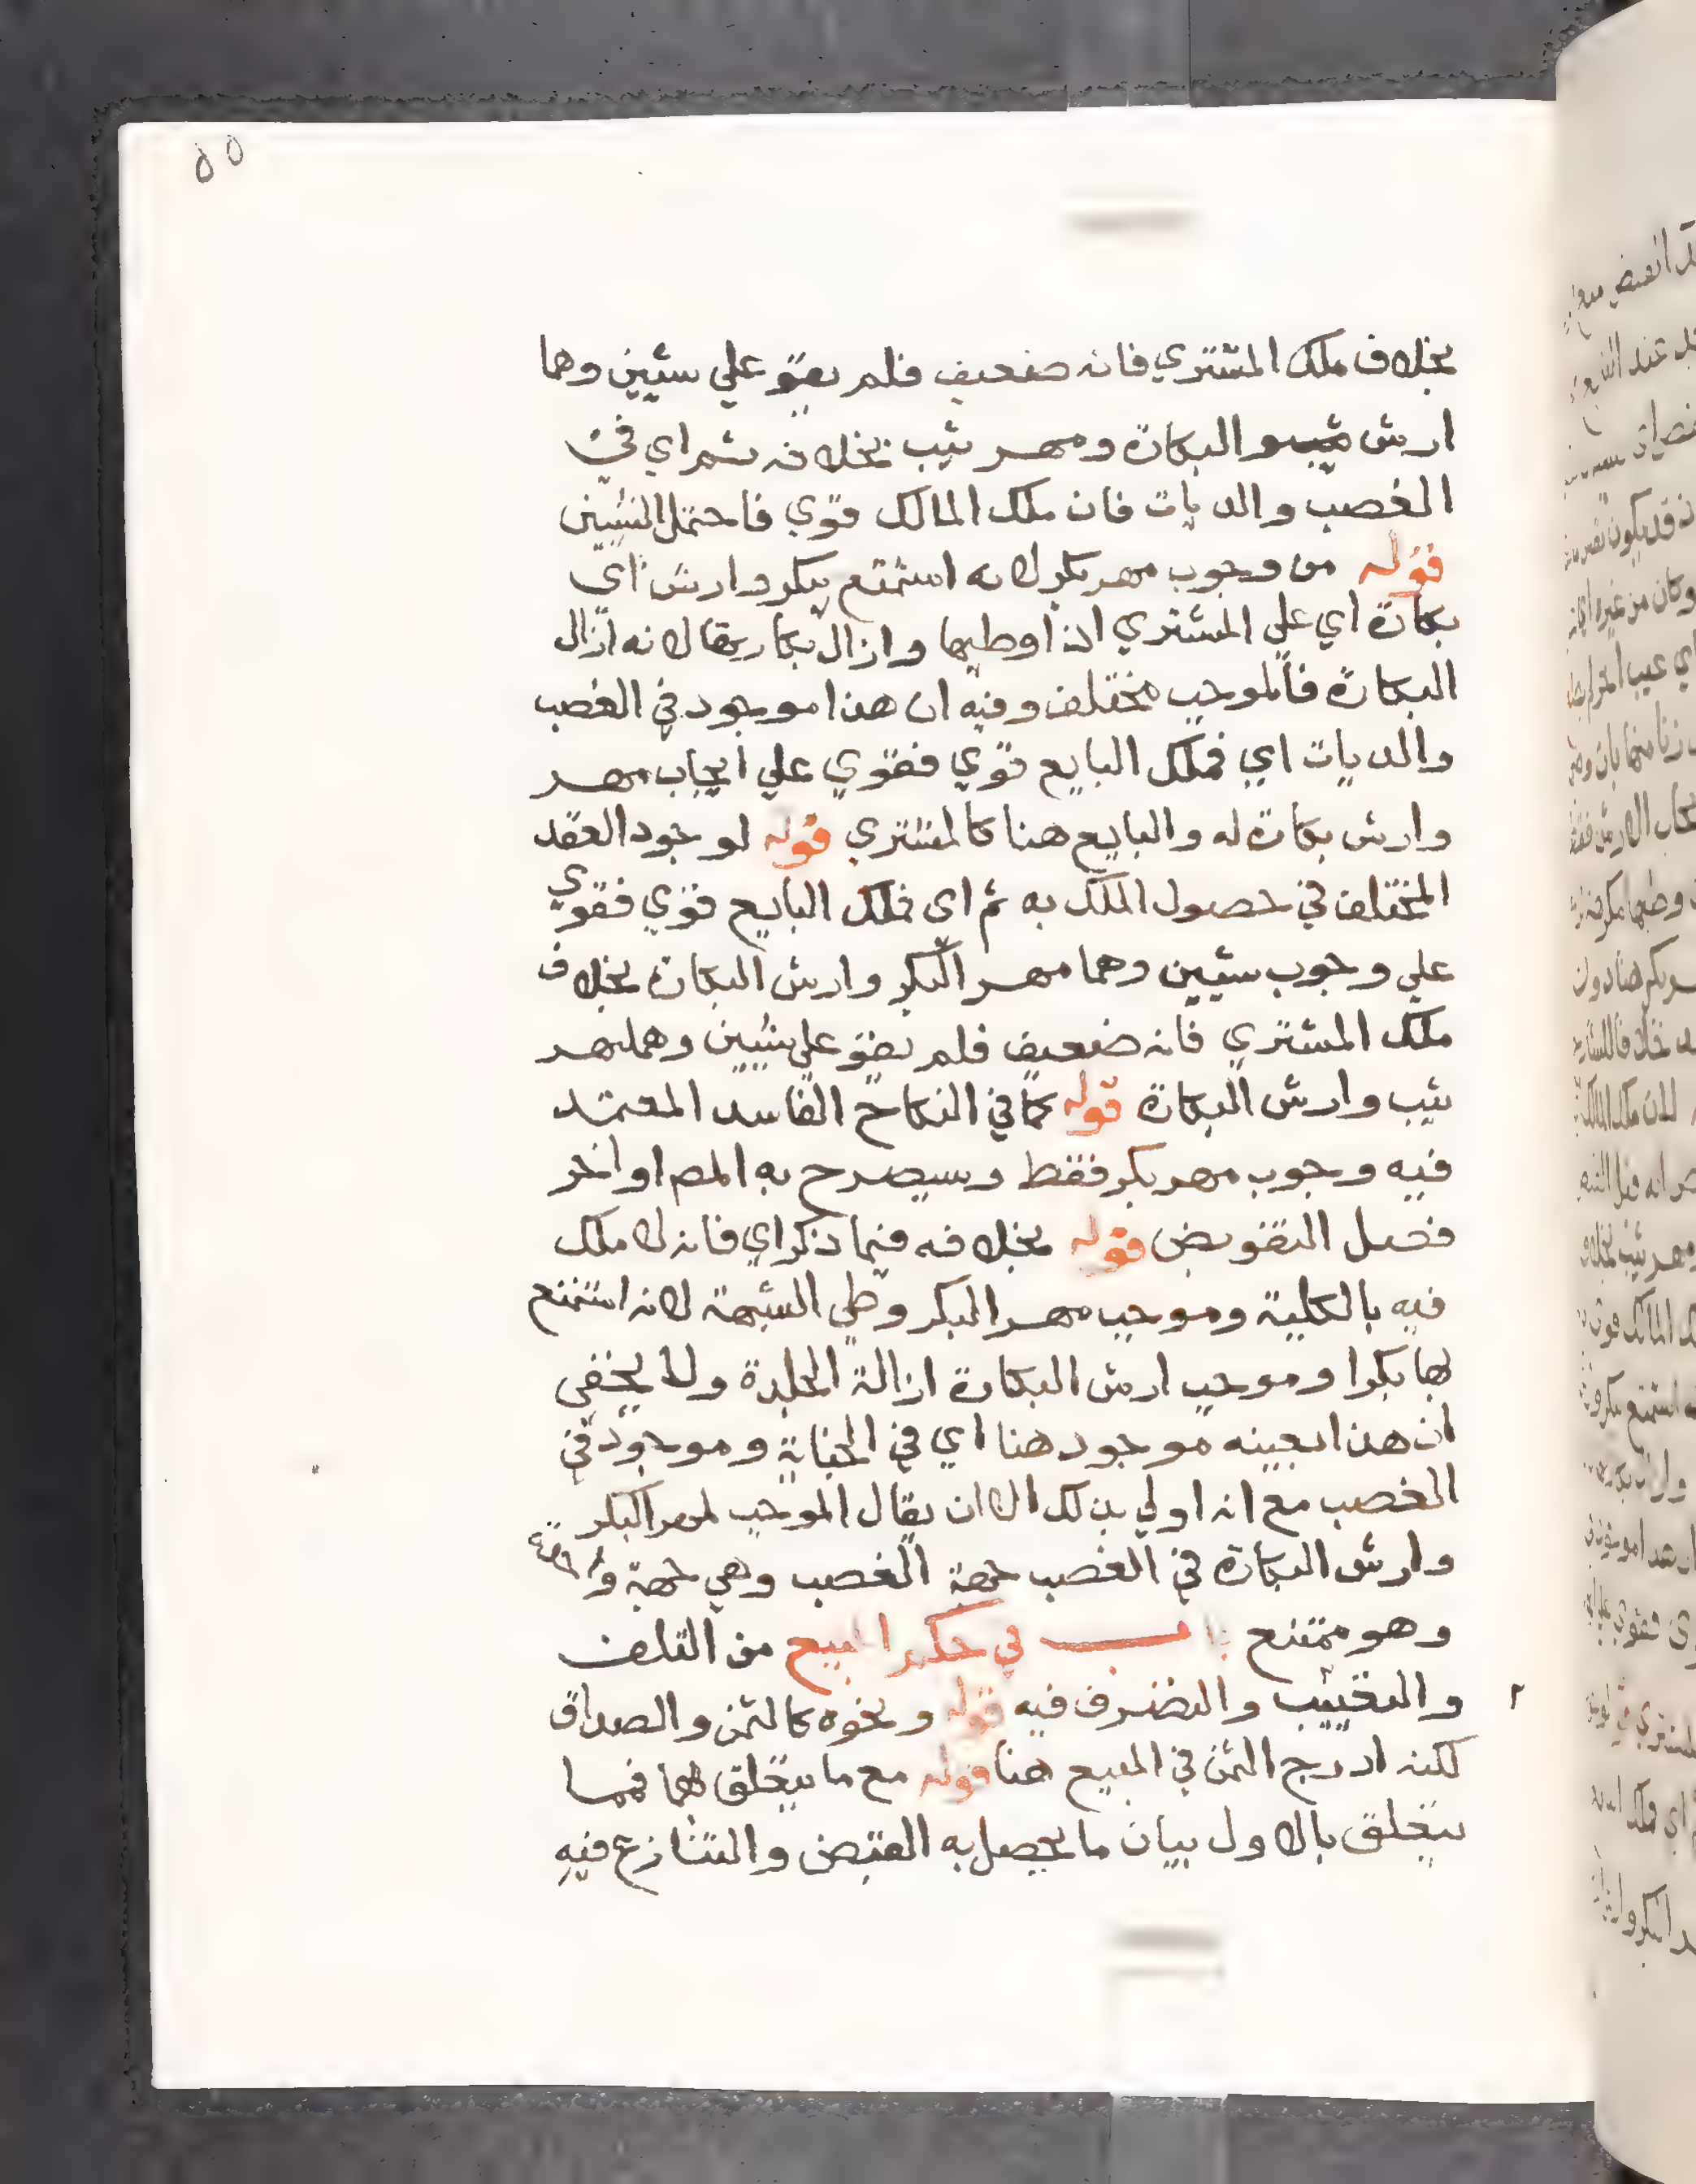 ٥٥
بخلاف ملك المشتري فانه ضعيف فلم يقو علي شيئين وهما
ارش البكارة ومهر ثيب بخلافه ثم اي في
الغصب والديات فان ملك المالك قوي فاحتمل الشيئين
قوله من وجوب مهر بكر لانه استمتع ببكر وارش اي
بكارة اي علي المشتري اذا وطيها وازال بكارتها لانه ازال
البكارة فالموجب مختلف وفيه ان هذا موجود في الغصب
والديات اي فملك البايع قوي فقوي علي ايجاب مهر
وارش بكارة له والبايع هنا كالمشتري قوله لوجود العقد
المختلف في حصول الملك به ثم اي فملك البايع قوي فقوي
علي وجوب شيئين وهما مهر البكر وارش البكارة بخلاف
ملك المشتري فانه ضعيف فلم يقو علي شيئين وهما مهر
ثيب وارش البكارة قوله كما في النكاح الفاسد المعتمد
فيه وجوب مهر بكر فقط وسيصرح به المصـ اواخر
فصل التفويض قوله بخلافه فيما ذكر اي فانه لا ملك
فيه بالكلية وموجب مهر البكر وطي الشبهة لانه استمتع
بها بكرا وموجب ارش البكارة ازالة الجلدة ولا يخفي
ان هذا بعينه موجود هنا اي في الجناية وموجود في
الغصب مع انه اولي بذلك الا ان يقال الموجب لمهر البكر
وارش البكارة في الغصب جهة الغصب وهي جهة واحدة
وهو ممتنع باب في حكم المبيع من التلف
والتعييب والتصرف فيه قوله ونحوه كالثمن والصداق
لكنه ادرج الثمن في المبيع هنا قوله مع ما يتعلق بهما فمما
يتعلق بالاول بيان ما يحصل به القبض والتنازع فيه